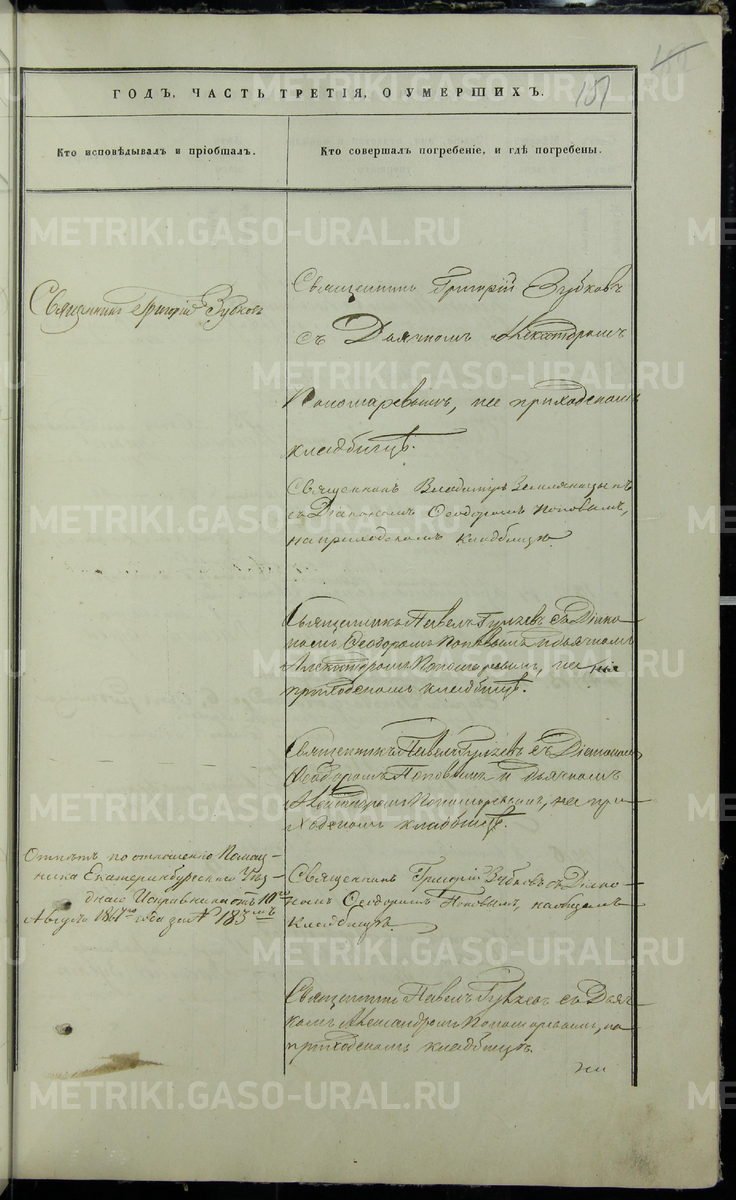 151
ГОДЪ, ЧАСТЬ ТРЕТІЯ, О УМЕРШИХЪ.
Кто исповѣдывалъ и пріобщалъ.
Кто совершалъ погребеніе, и гдѣ погребены.
Священникъ Григорій Зубковъ
Священникъ Григорій Зубковъ
съ Дьячкомъ Александромъ
Пономаревымъ, на приходскомъ
кладбищѣ.
Священникъ Владиміръ
съ Діакономъ Ѳеодоромъ Поповымъ,
на приходскомъ кладбищѣ.
Священникъ Павелъ съ Діако
номъ Ѳеодоромъ Поповымъ и дьячкомъ
Александромъ Пономаревымъ, на
приходскомъ кладбищѣ.
Священникъ Павелъ съ Діакономъ
Ѳеодоромъ Поповымъ и дьячкомъ
Александромъ Пономаревымъ, на при
ходскомъ кладбищѣ.
Отпѣтъ по отношенію Помощ-
ника Екатеринбургскаго Уѣз-
днаго Исправника отъ 10го
Августа 1867го года за № 183мъ
Священникъ Григорій Зубковъ съ Діако-
номъ Ѳеодоромъ Поповымъ, на общемъ
кладбищѣ.
Священникъ Павелъ съ Дьяч
комъ Александромъ Пономаревымъ, на
приходскомъ кладбищѣ.
METRIKI.GASO-URAL.RU